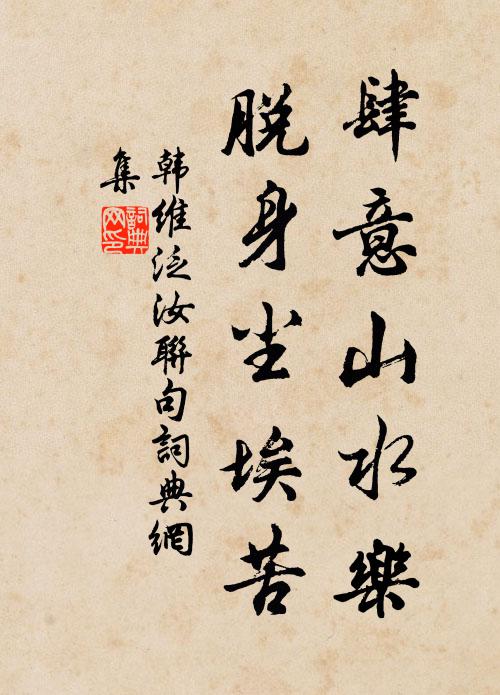 肆意山水樂
脱身尘埃苦
韩維泛汝聯句詞典網
集
詞典网印